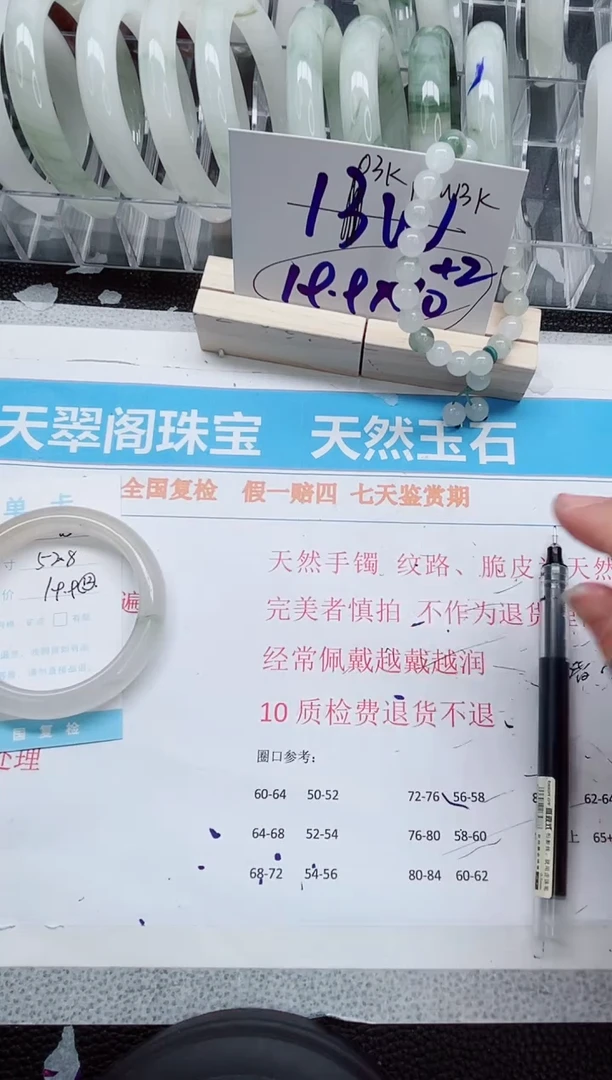 03K
13W
W3K
19.9X10+2
天翠阁珠宝 天然玉石
全国复检 假一赔四 七天鉴赏期
单卡
寸 52.8
价 19.9
天然手镯 纹路、脆皮为天然
遍
完美者慎拍 不作为退货理
经常佩戴越戴越润
10 质检费退货不退
国复检
处理
圈口参考:
60-64 50-52 72-76 56-58 62-64
64-68 52-54 76-80 58-60 上 65+
68-72 54-56 80-84 60-62